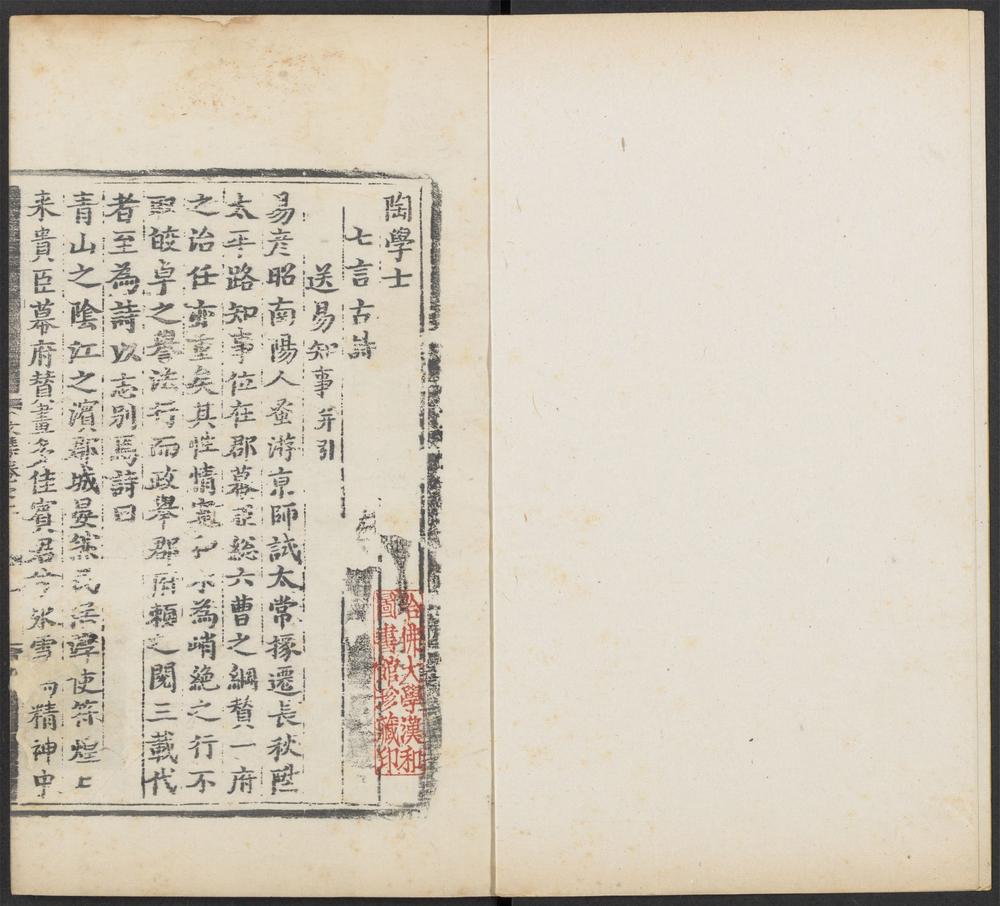 陶學士
七言古詩
送易知事并引
易彦昭南陽人蚤游京師試太常掾遷長秋陞
太平路知事位在郡幕総六曹之綱贊一府
之治任重矣其性情為峭絶之行不
皎卓之譽法行而政舉郡府頼之閱三載代
者至為詩以志别焉詩曰
青山之陰江之濱城晏然民使符煌上
来貴臣幕府賛畫多佳賓君氷雪精神中
哈佛大學漢和
圖書館珍藏印